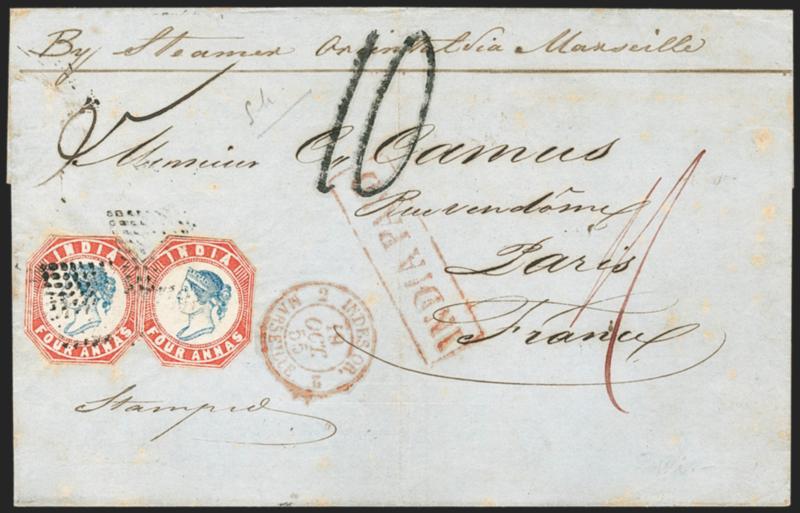 By Steamer Oriental via Marseille
10
Monsieur Ca Camus
Rue vendôme
Paris
France
INDIA PAID
INDIA
FOUR ANNAS
INDIA
FOUR ANNAS
INDES OR.
2
OCT
55
2
MARSEILLE
Stamped